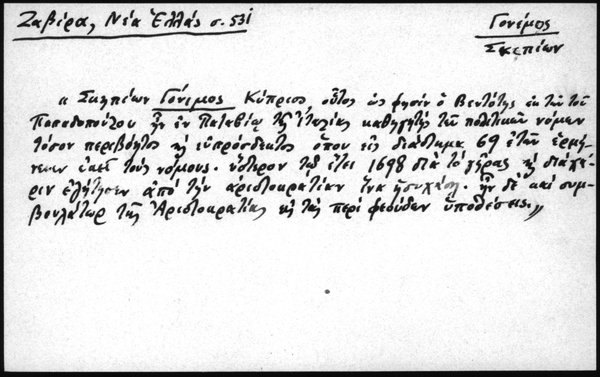 Ζαβίρα, Νέα Ἑλλάς σ. 531
Γονέμος
Σκεπίων
« Σκηπίων Γονέμος Κύπριος, οὗτος ὡς φησίν ὁ Βενδότης ἐκ τῶν τοῦ
Παπαδοπούλου ἦν ἐν Παταβίῳ τῆς Ἰταλίας καθηγητής τῶν πολιτικῶν νόμων
τόσον περιβόητος κ̀ εὐπρόσδεκτος ὅπου εἰς διάστημα 69 ἐτῶν ἑρμή-
νευεν ἐκεῖ τούς νόμους. ὕστερον τῷ ἔτει 1698 διά τό γῆρας κ̀
ἐζήτησεν ἀπό τήν ἀριστοκρατίαν ἵνα ἡσυχάσῃ. ἦν δέ καί συμ-
βουλάτωρ τῆς Ἀριστοκρατίας εἰς τάς περί φεούδων ὑποθέσεις.»